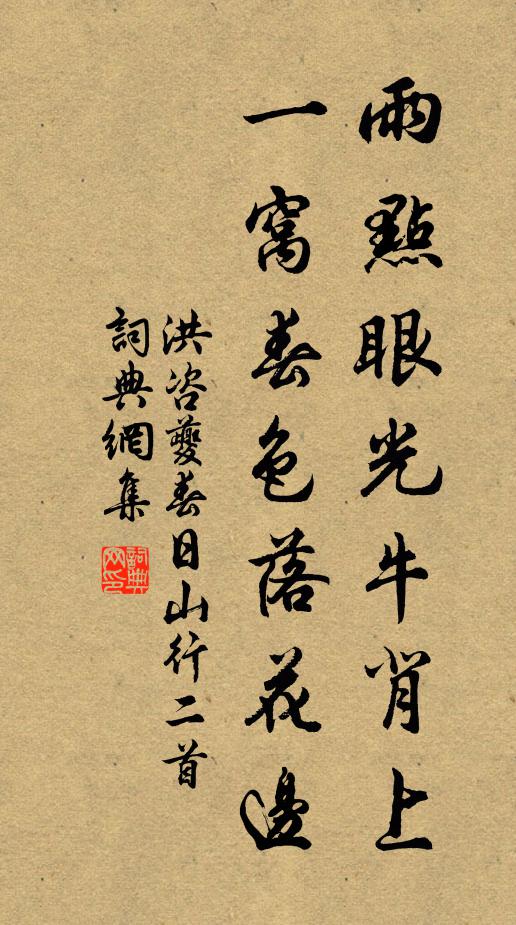 兩點眼光牛背上
一窩春色落花邊
洪咨夔春日山行二首
詞典網集
詞典网印